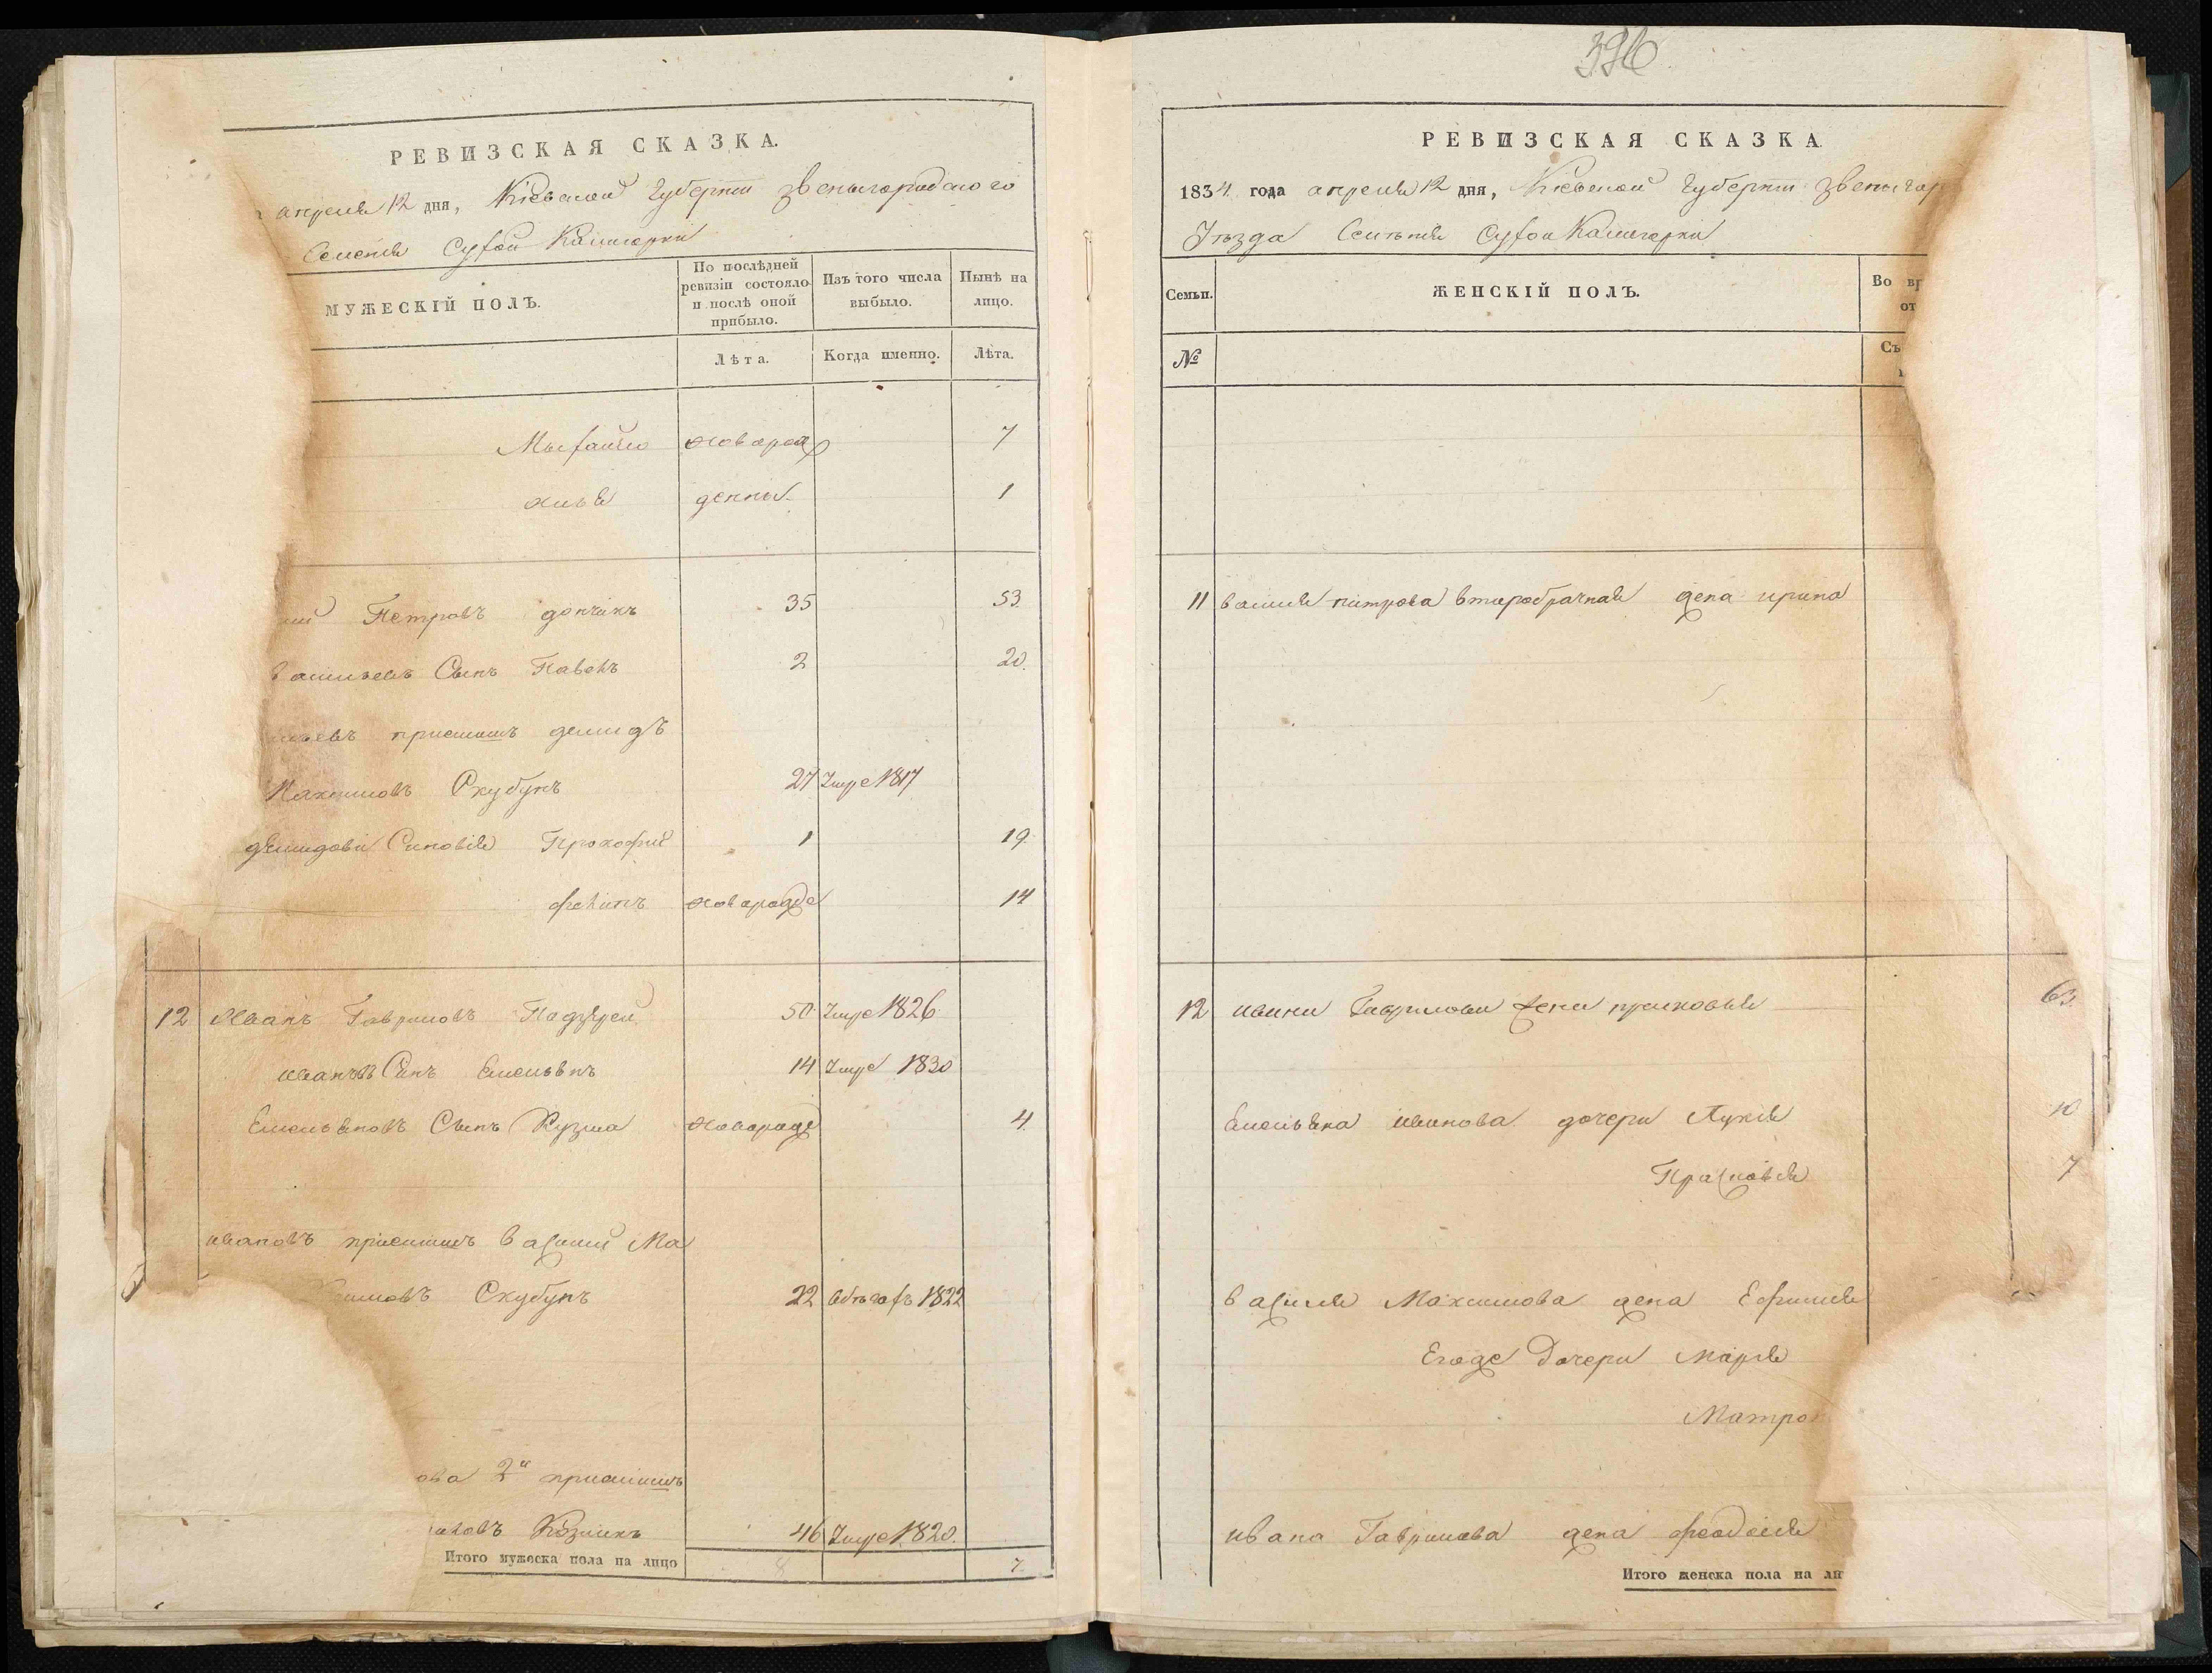 РЕВИЗСКАЯ СКАЗКА.
апреля 12 дня, Киевской Губернии Звенигородского
Селения Сухой Калигорки
МУЖЕСКІЙ ПОЛЪ.
По послѣдней ревизіи состояло и послѣ оной прибыло.
Изъ того числа выбыло.
Нынѣ на лицо.
Лѣта.
Когда именно.
Лѣта.
Михайло новорож 7
Илья денны 1
Петровъ 35 53.
Васильевъ Сынъ Павелъ 2 20.
приемышъ демидъ
Максимовъ Скубунъ 27 Умре 1817
демидови Синовія Прокофий 1 19.
филипъ новорожде 14
12 Иванъ Гавриловъ 50 Умре 1826
Ивановъ Синъ Емельянъ 14 Умре 1830
Емельяновъ Сынъ Кузма новорожде 4.
Ивановъ приемишъ Василий Ма
ксимовъ Скубунъ 22 1822
ова 2й приемишъ
46 Умре 1820.
Итого мужеска пола на лицо 7.
396
РЕВИЗСКАЯ СКАЗКА
1834 года апреля 12 дня, Киевской Губернии Звенигор
Уѣзда Селения Сухой Калигорки
Семьи.
ЖЕНСКІЙ ПОЛЪ.
Во вр
от
№
Съ
11 Василия петрова второбрачная жена ирина
12 Ивана Гаврилова жена прасковья 63.
Емельяна Иванова дочери Лукия 10
Прасковья 7
Василия Максимова жена Ефимия
Егоже Дочери Мария
Матро
Ивана Гаврилова жена феодосия
Итого женска пола на ли